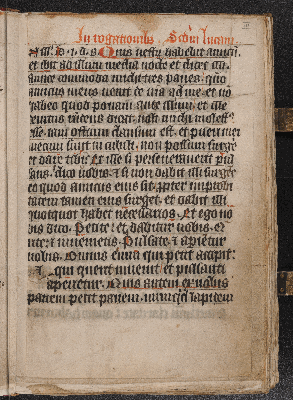 In rogationibus Scdm lucam
In ill. t. d. i. d. s. Quis vestrū habebit amicū
et ibit ad illum media nocte et dicet illi.
amice commoda michi tres panes. quō
amicus meus venit de via ad me. et nō
habeo quod ponam ante illum. et ille
deintus rñdens dicat. noli michi molest9
esse. iam ostium clausum est. et pueri mei
mecum sunt in cubili. non possum surge
et dare tibi. Et ille si perseuerauerit pul
sans. dico vobis. et si non dabit illi surges
eo quod amicus eius sit. propter improbi
tatem tamen eius surget. et dabit illi
quotquot habet necessarios. Et ego uo
bis dico. Petite et dabitur vobis. que
rite et inuenietis. Pulsate et apietur
vobis. Omnis enim qui petit accipit.
et qui querit inuenit. et pulsanti
aperietur. Quis autem ex vobis
patrem petit panem. numquid lapidem